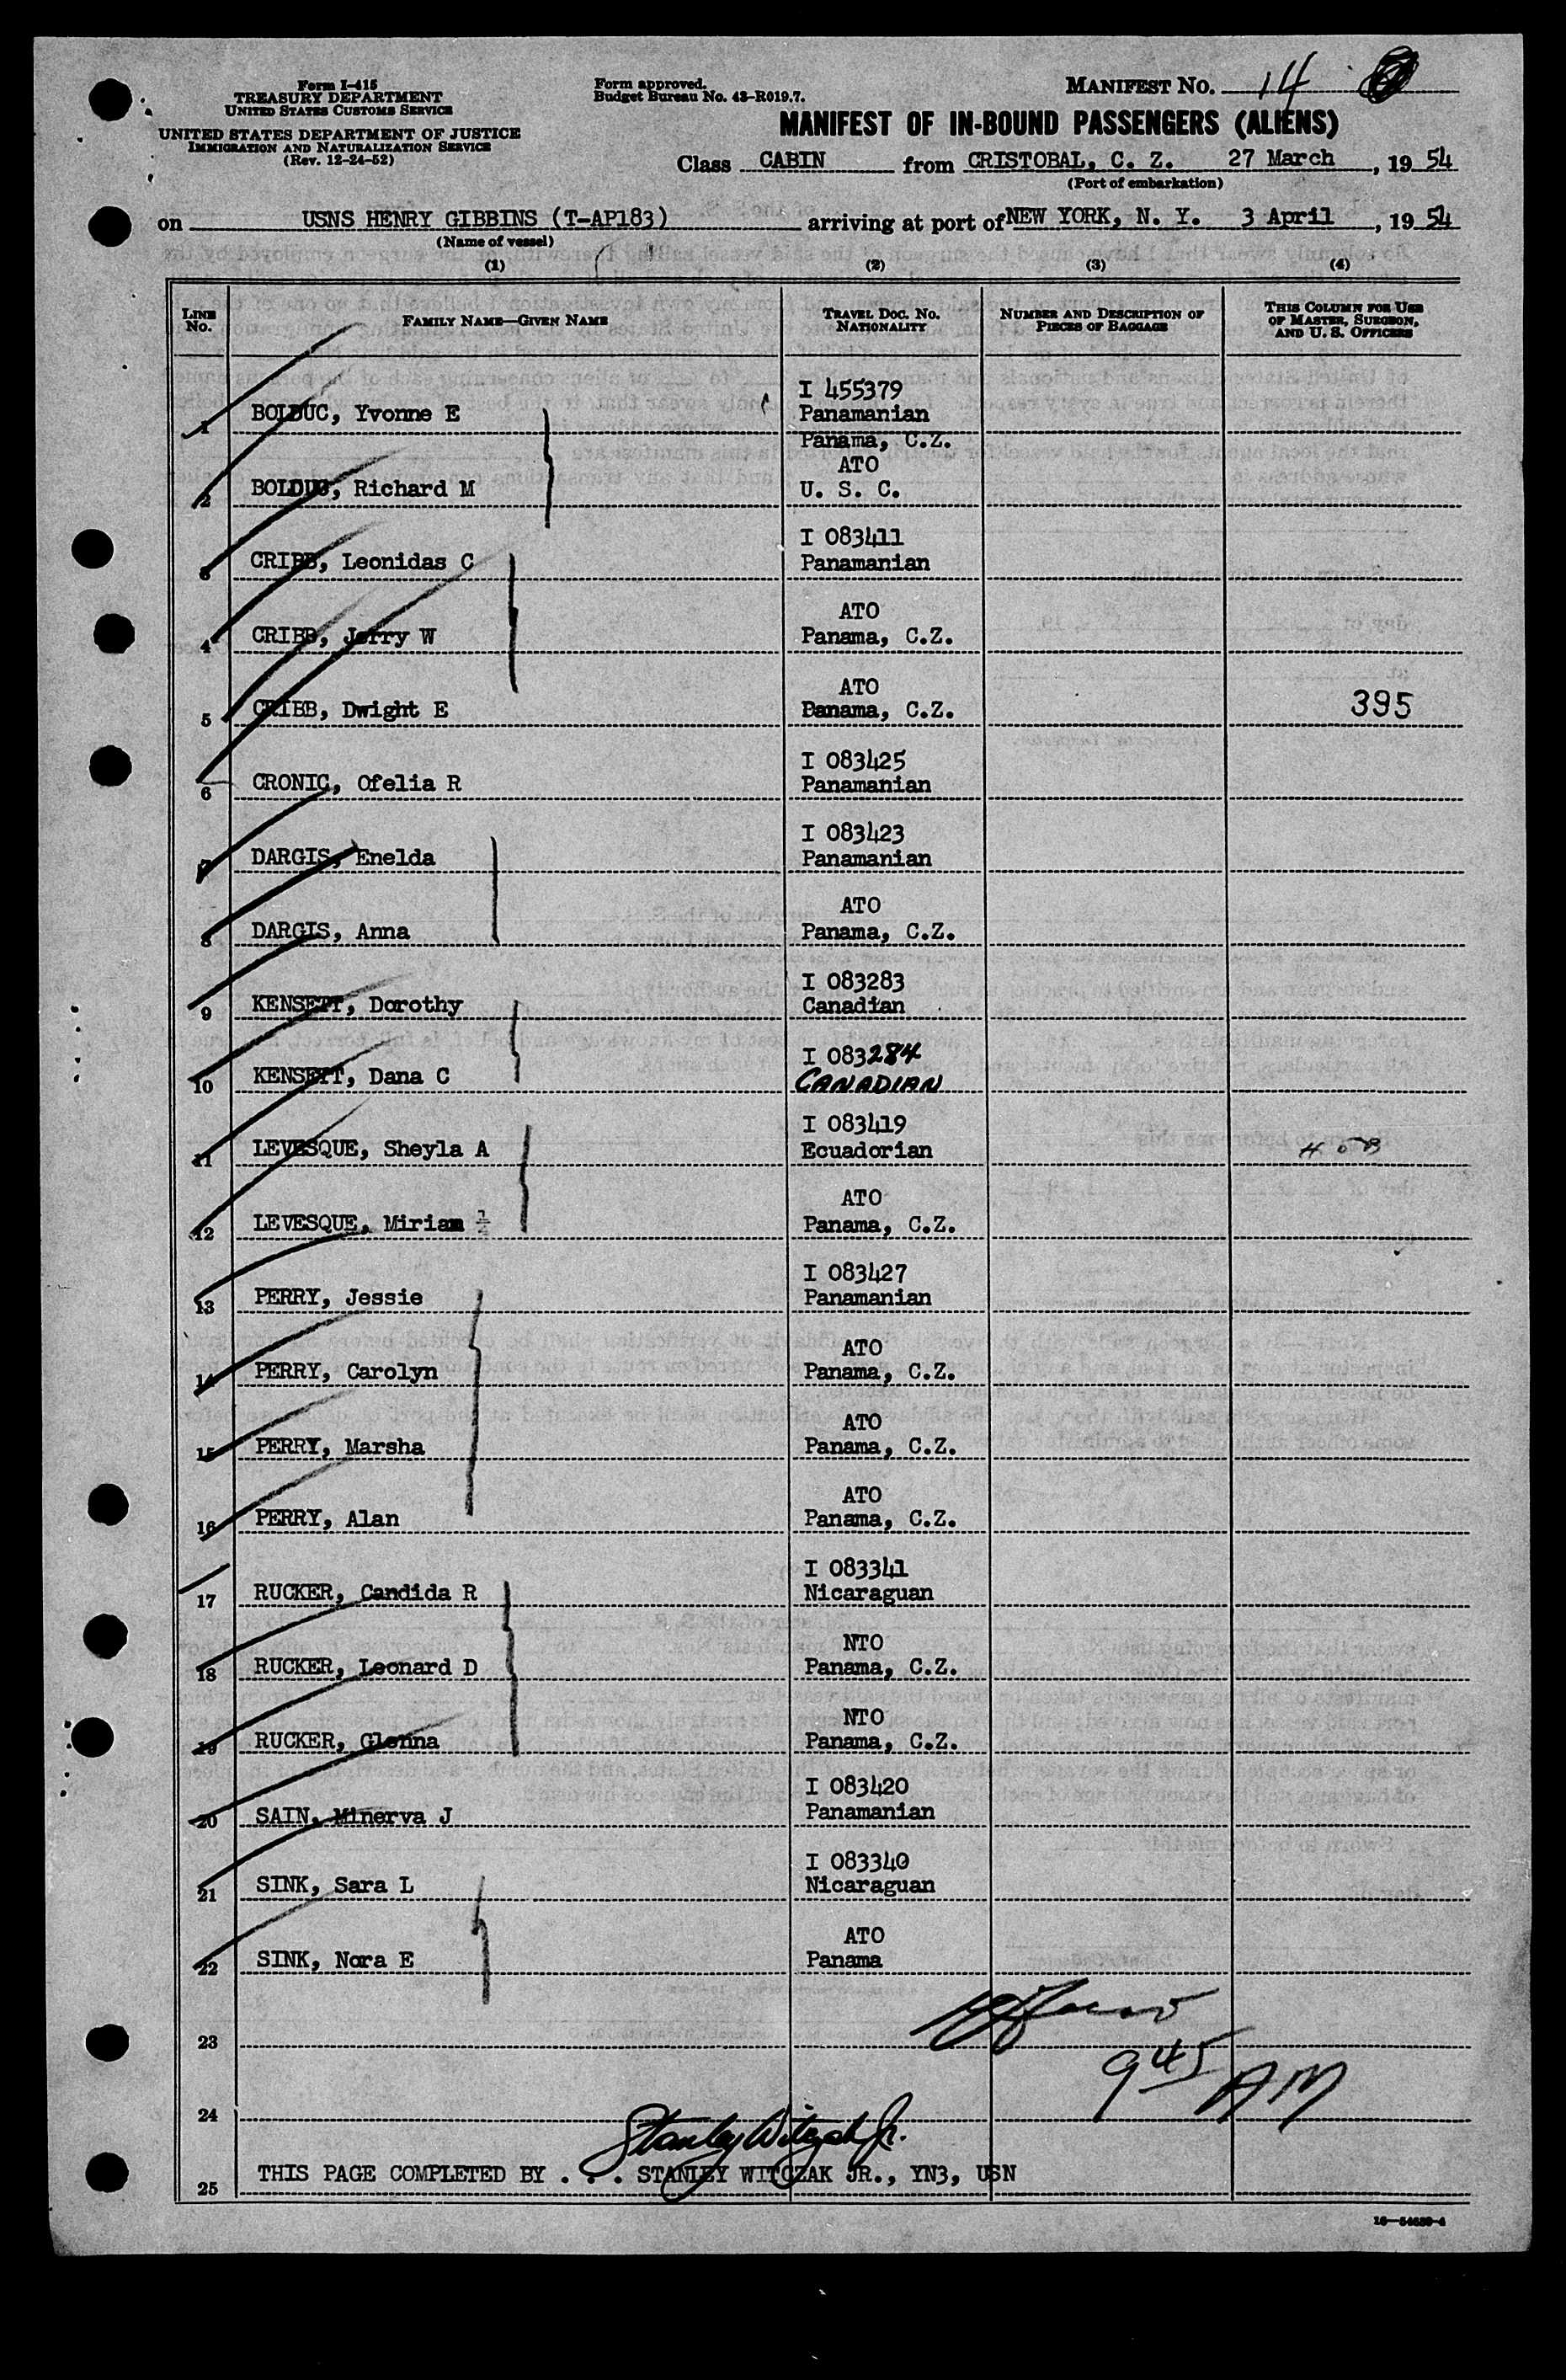 Form I-415
TREASURY DEPARTMENT
UNITED STATES CUSTOMS SERVICE
UNITED STATES DEPARTMENT OF JUSTICE
IMMIGRATION AND NATURALIZATION SERVICE
(Rev. 12-24-52)
Form approved.
Budget Bureau No. 43-R019.7.
MANIFEST NO. 14
MANIFEST OF IN-BOUND PASSENGERS (ALIENS)
Class CABIN from CRISTOBAL, C. Z. 27 March, 19 54
(Port of embarkation)
on USNS HENRY GIBBINS (T-AP183) arriving at port of NEW YORK, N. Y. 3 April, 19 54
(Name of vessel)
(1) (2) (3) (4)
LINE No. FAMILY NAME—GIVEN NAME TRAVEL DOC. NO. NATIONALITY NUMBER AND DESCRIPTION OF PIECES OF BAGGAGE THIS COLUMN FOR USE OF MASTER, SURGEON, AND U. S. OFFICERS
I 455379
1 BOLDUC, Yvonne E Panamanian
Panama, C.Z.
ATO
2 BOLDUC, Richard M U. S. C.
I 083411
3 CRIBB, Leonidas C Panamanian
ATO
4 CRIBB, Jerry W Panama, C.Z.
ATO
5 CRIBB, Dwight E Panama, C.Z. 395
I 083425
6 CRONIC, Ofelia R Panamanian
I 083423
7 DARGIS, Enelda Panamanian
ATO
8 DARGIS, Anna Panama, C.Z.
I 083283
9 KENSETT, Dorothy Canadian
I 083284
10 KENSETT, Dana C CANADIAN
I 083419
11 LEVESQUE, Sheyla A Ecuadorian
ATO
12 LEVESQUE, Miriam Panama, C.Z.
I 083427
13 PERRY, Jessie Panamanian
ATO
14 PERRY, Carolyn Panama, C.Z.
ATO
15 PERRY, Marsha Panama, C.Z.
ATO
16 PERRY, Alan Panama, C.Z.
I 083341
17 RUCKER, Candida R Nicaraguan
NTO
18 RUCKER, Leonard D Panama, C.Z.
NTO
19 RUCKER, Glenna Panama, C.Z.
I 083420
20 SAIN, Minerva J Panamanian
I 083340
21 SINK, Sara L Nicaraguan
ATO
22 SINK, Nora E Panama
23
9 45 AM
24
Stanley Witczak Jr.
25 THIS PAGE COMPLETED BY . . . STANLEY WITCZAK JR., YN3, USN